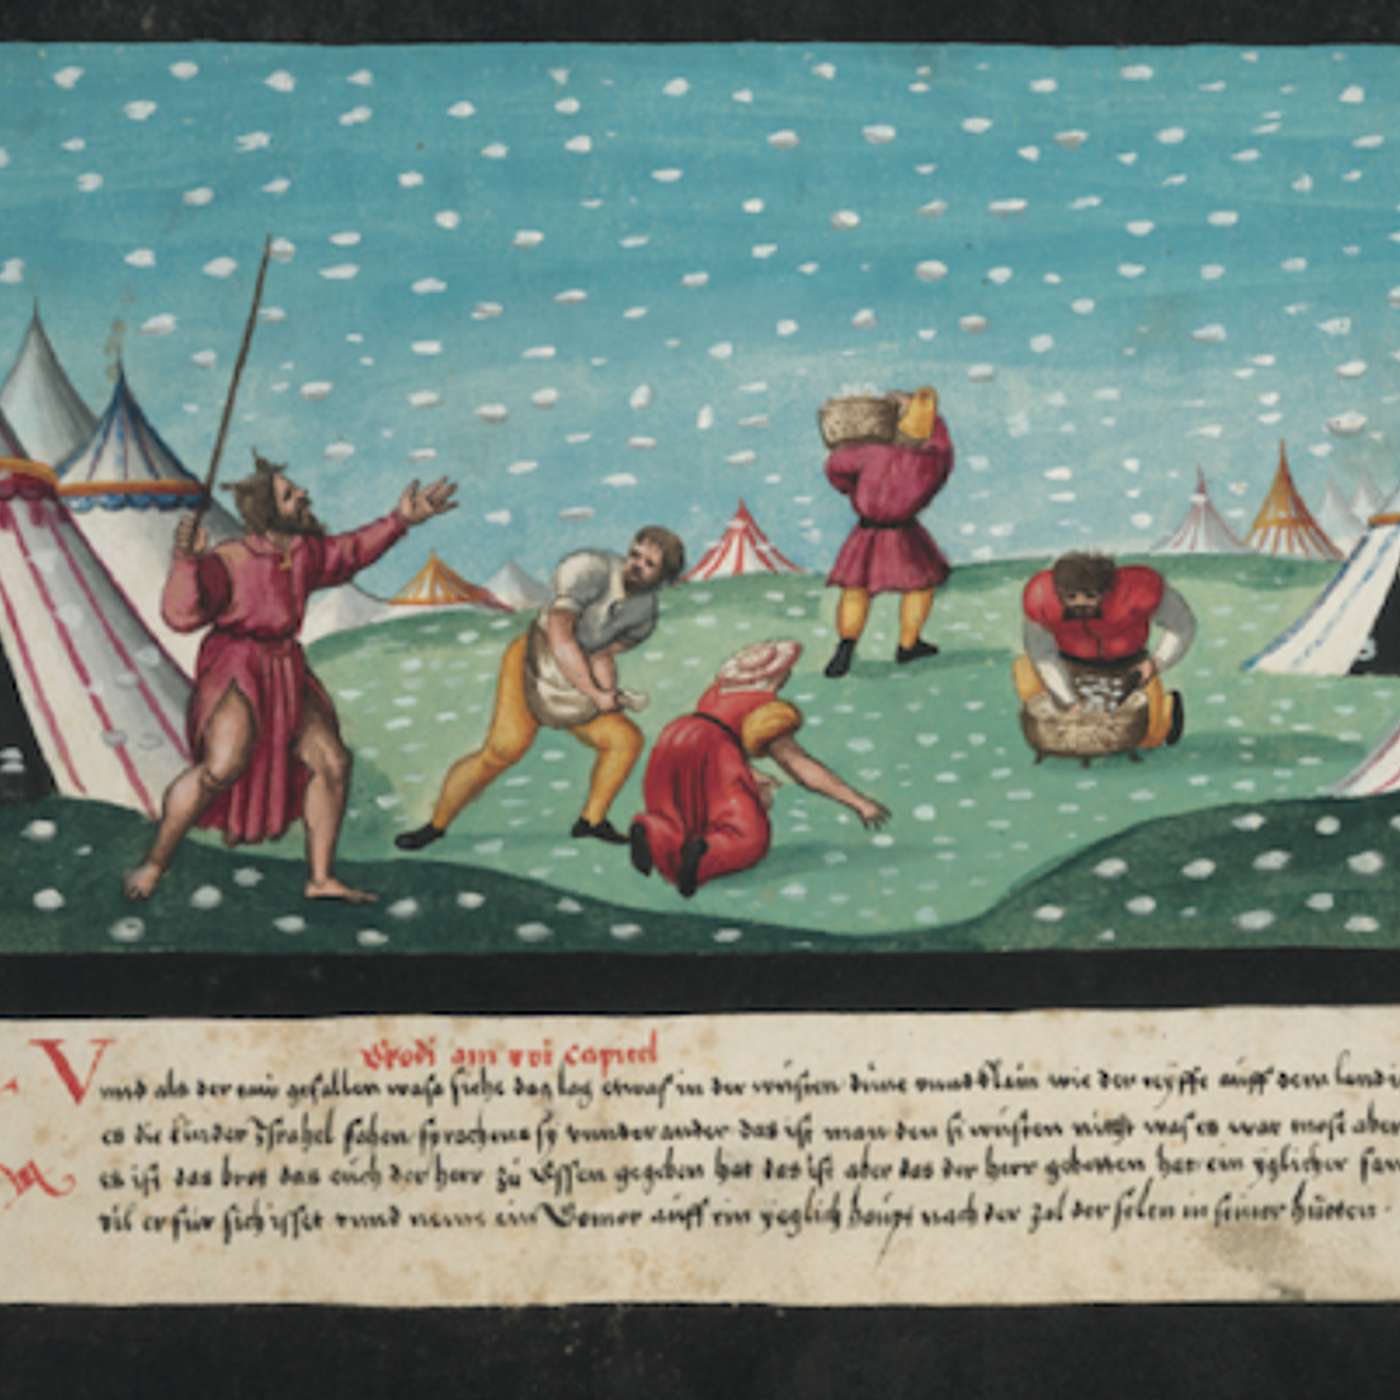 Exodi am xvi capitel
Vnnd als der taw gefallen wase sihe das lag etwas in der wüsten dinne vnnd klain wie der reyffe auff dem
es die kinder Jsrahel sahen sprachens sy vnnder ander das ist man den si wüsten nicht was es war mose aber
es ist das brot das euch der herr zü essen gegeben hat das ist aber das der herr gebotten hat ein yglicher
vil er für sich isset vnnd neme ein Gomor auff ein yeglich haupt nach der zal der selen in seiner hütten